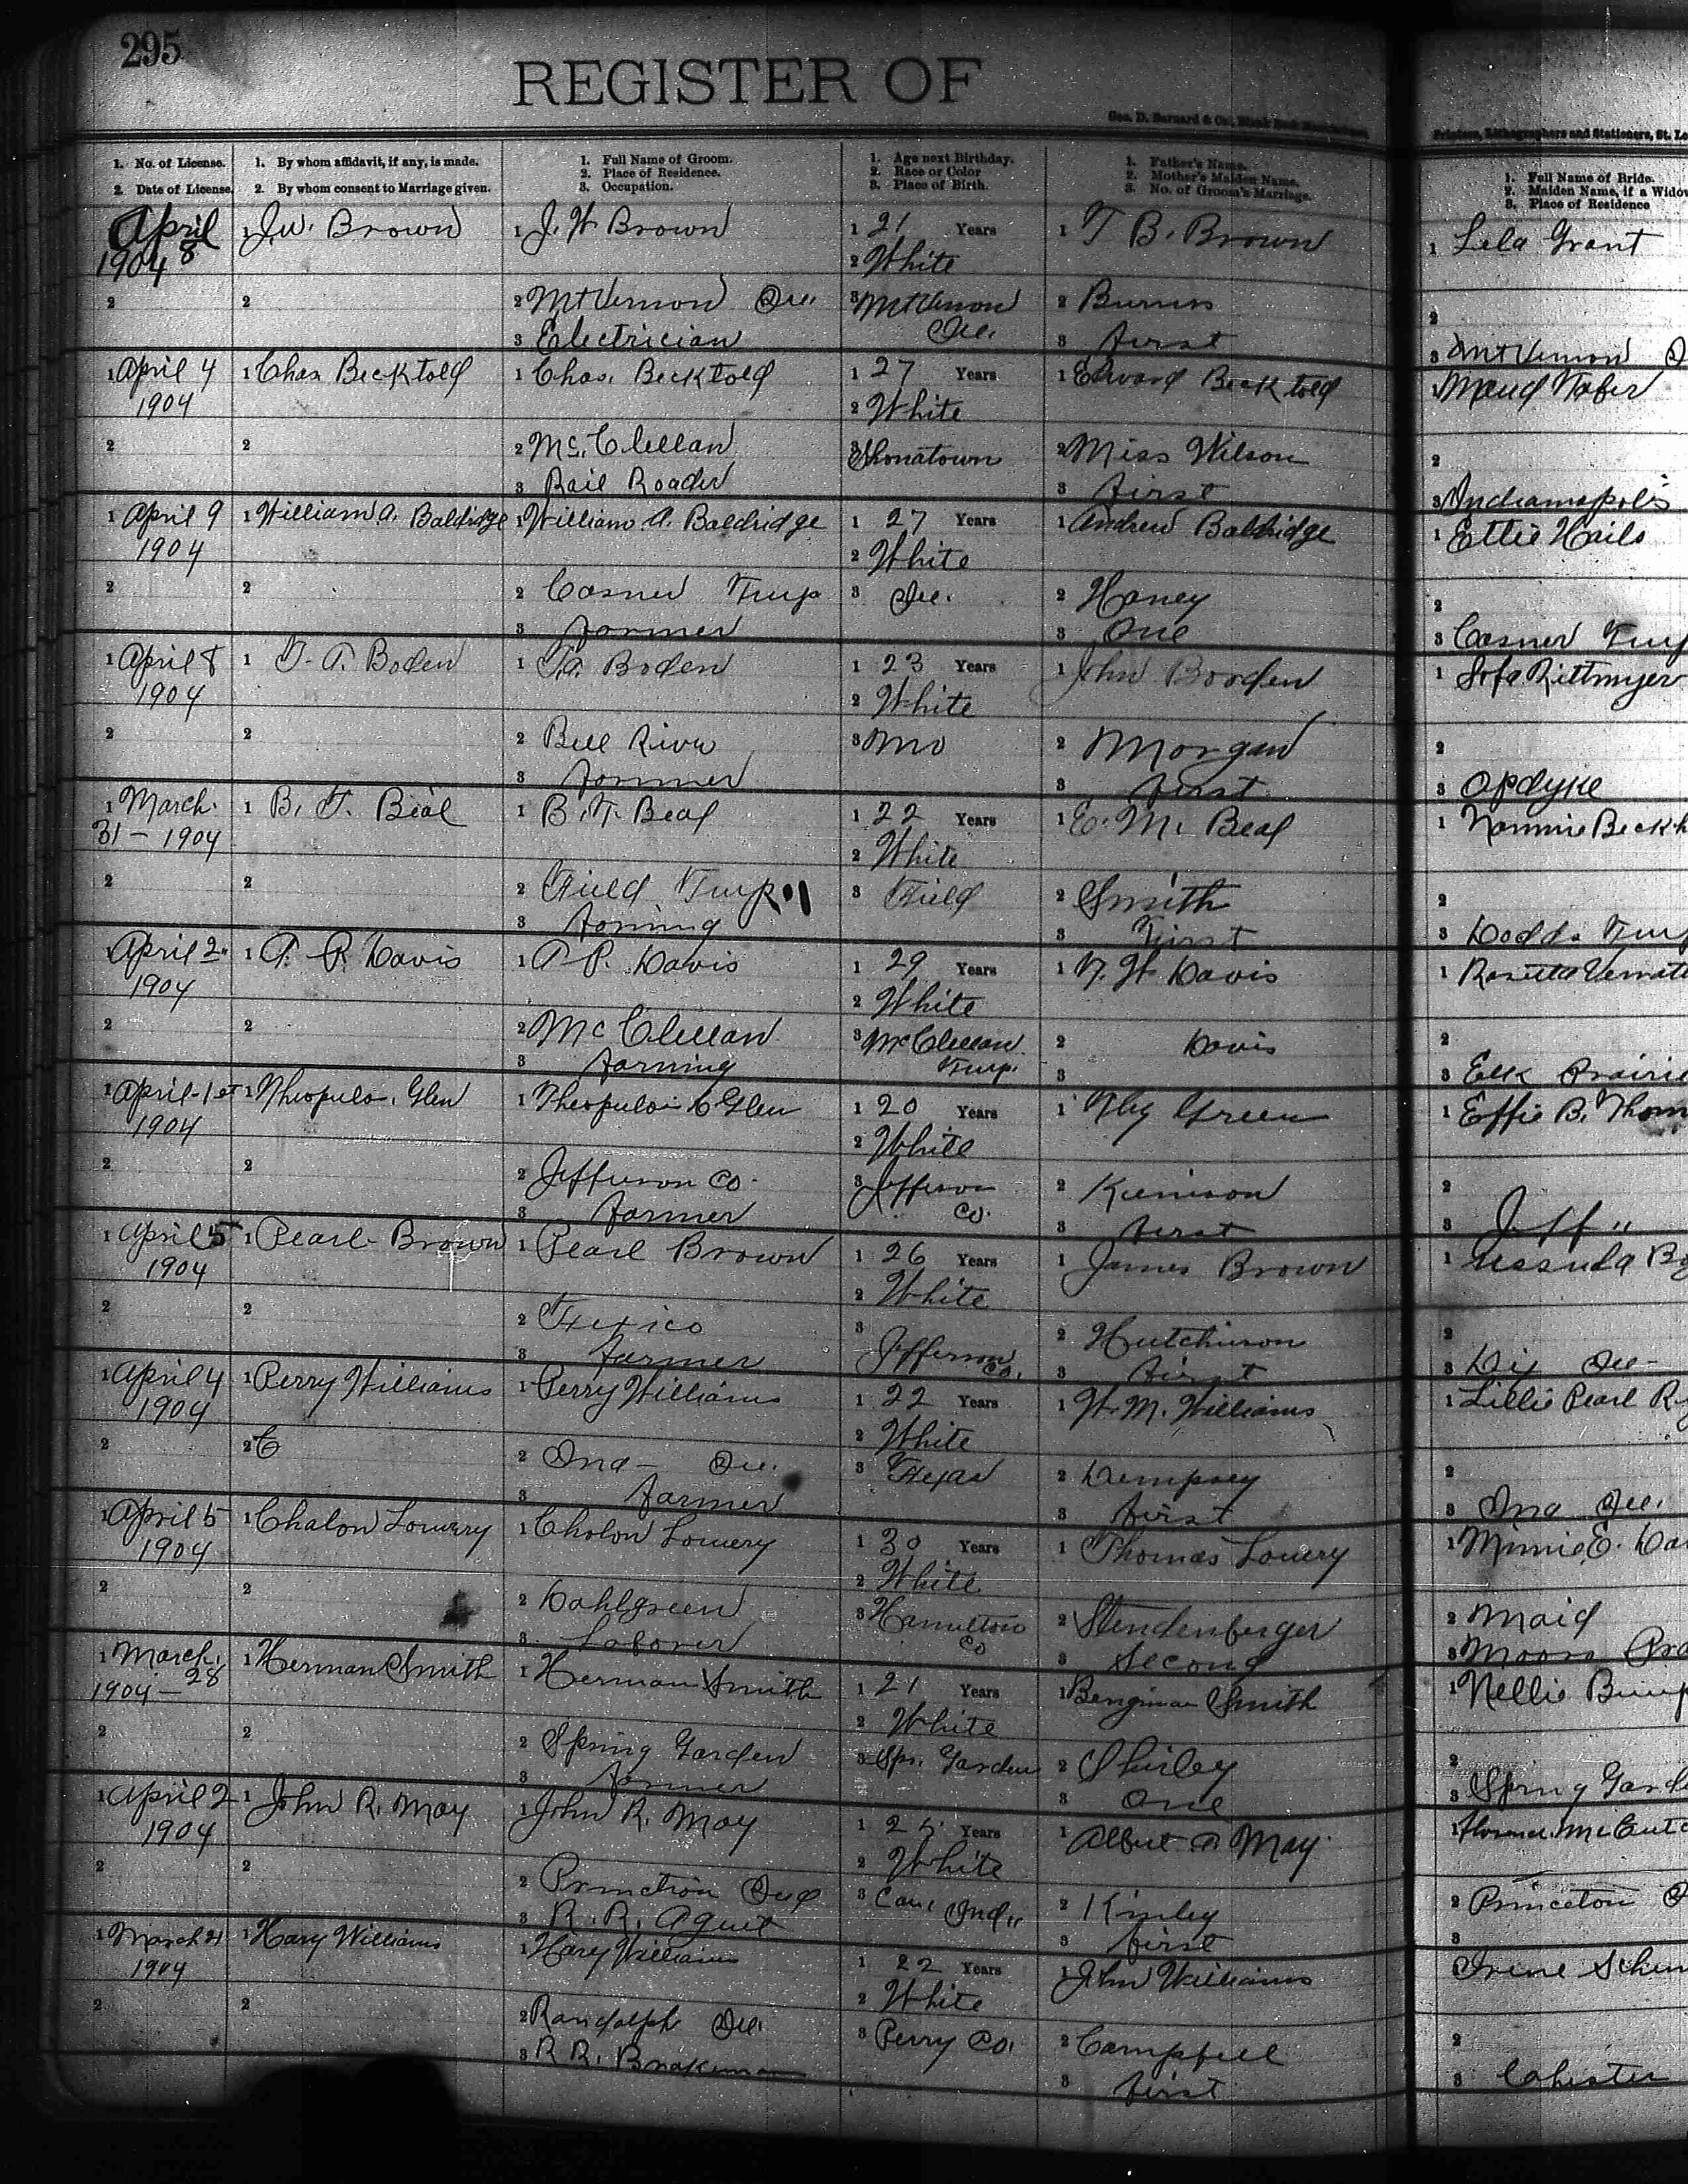 295
REGISTER OF
Geo. D. Barnard & Co., Blank Book
Printers, Lithographers and Stationers, St. Lo
1. No. of License.
2. Date of License.
1. By whom affidavit, if any, is made.
2. By whom consent to Marriage given.
1. Full Name of Groom.
2. Place of Residence.
3. Occupation.
1. Age next Birthday.
2. Race or Color
3. Place of Birth.
1. Father's Name.
2. Mother's Maiden Name.
3. No. of Groom's Marriage.
1. Full Name of Bride.
2. Maiden Name, if a Widow
3. Place of Residence
April 8
1904
2
1 J.W. Brown
2
1 J. W Brown
2 Mt Vernon Ill.
3 Electrician
1 21 Years
2 White
3 Mt Vernon
Ill.
1 T B. Brown
2 Burns
3 first
1 Lela Grant
2
3 Mt Vernon
1 April 4
1904
2
1 Chas Becktold
2
1 Chas. Becktold
2 Mc. Clellan
3 Rail Roader
1 27 Years
2 White
3 Shonatown
1 Edward Becktold
2 Miss Wilson
3 first
Maud
2
3 Indianapolis
1 April 9
1904
2
1 William A. Baldridge
2
1 William A. Baldridge
2 Casner Twp
3 farmer
1 27 Years
2 White
3 Ill.
1 Andrew Baldridge
2 Haney
3 One
1 Ettie Hails
2
3 Casner Twp
1 April 8
1904
2
1 T. A. Boden
2
1 T.A. Boden
2 Bell River
3 farmer
1 23 Years
2 White
3 Mo
1 John Borden
2 Morgan
3 first
1 Sofa Rittmyer
2
3 Opdyke
1 March
31 - 1904
2
1 B. F. Beal
2
1 B. F. Beal
2 Field Twp
3 farming
1 22 Years
2 White
3 Field
1 E. M. Beal
2 Smith
3 First
1 Nommie Beckh
2
3 Dodds Twp
1 April 2"
1904
2
1 A. P. Davis
2
1 A P. Davis
2 Mc Clellan
3 farming
1 29 Years
2 White
3 McClellan
Twp.
1 N. W. Davis
2 Davis
3
1 Rosetta
2
3 Elk Prairie
1 April-1st
1904
2
1 Theopulos. Glen
2
1 Theopulos C Glen
2 Jefferson Co.
3 farmer
1 20 Years
2 White
3 Jefferson
Co.
1 Thy Green
2 Kienison
3 first
1 Effie B. Thom
2
3 Jeff "
1 April 5
1904
2
1 Pearl Brown
2
1 Pearl Brown
2 Texico
3 farmer
1 26 Years
2 White
3 Jefferson
Co.
1 James Brown
2 Hutchinson
3 first
1 Ussula
2
3 Dix Ill-
1 April 4
1904
2
1 Perry Williams
2 C
1 Perry Williams
2 Ina - Ill.
3 farmer
1 22 Years
2 White
3 Texas
1 W. M. Williams
2 Dempsey
3 first
1 Lillie Pearl R
2
3 Ina Ill.
1 April 5
1904
2
1 Chalon Lowery
2
1 Cholon Lowery
2 Dahlgreen
3 Laborer
1 30 Years
2 White
3 Hamilton
Co
1 Thomas Lowery
2 Stendenberger
3 Second
1 Minnie E. Da
2 Maid
3 Moors Pra
1 March.
1904 - 28
2
1 Herman Smith
2
1 Herman Smith
2 Spring Garden
3 farmer
1 21 Years
2 White
3 Spr. Garden
1 Bengiman Smith
2 Shirley
3 One
1 Nellie Bump
2
3 Spring Gard
1 April 2
1904
2
1 John R. May
2
1 John R. May
2 Prinction Ind
3 R. R. Aguet
1 Years
2 White
3 Ind"
1 Albert A May
2 Kinley
3 first
1
2 Princeton
3
1 March 21
1904
2
1 Hary Williams
2
1 Hary Williams
2 Randolph Ill.
3 R R. Brakeman
1 22 Years
2 White
3 Perry Co.
1 John Williams
2 Campbell
3 first
Irene
2
3 Cohister